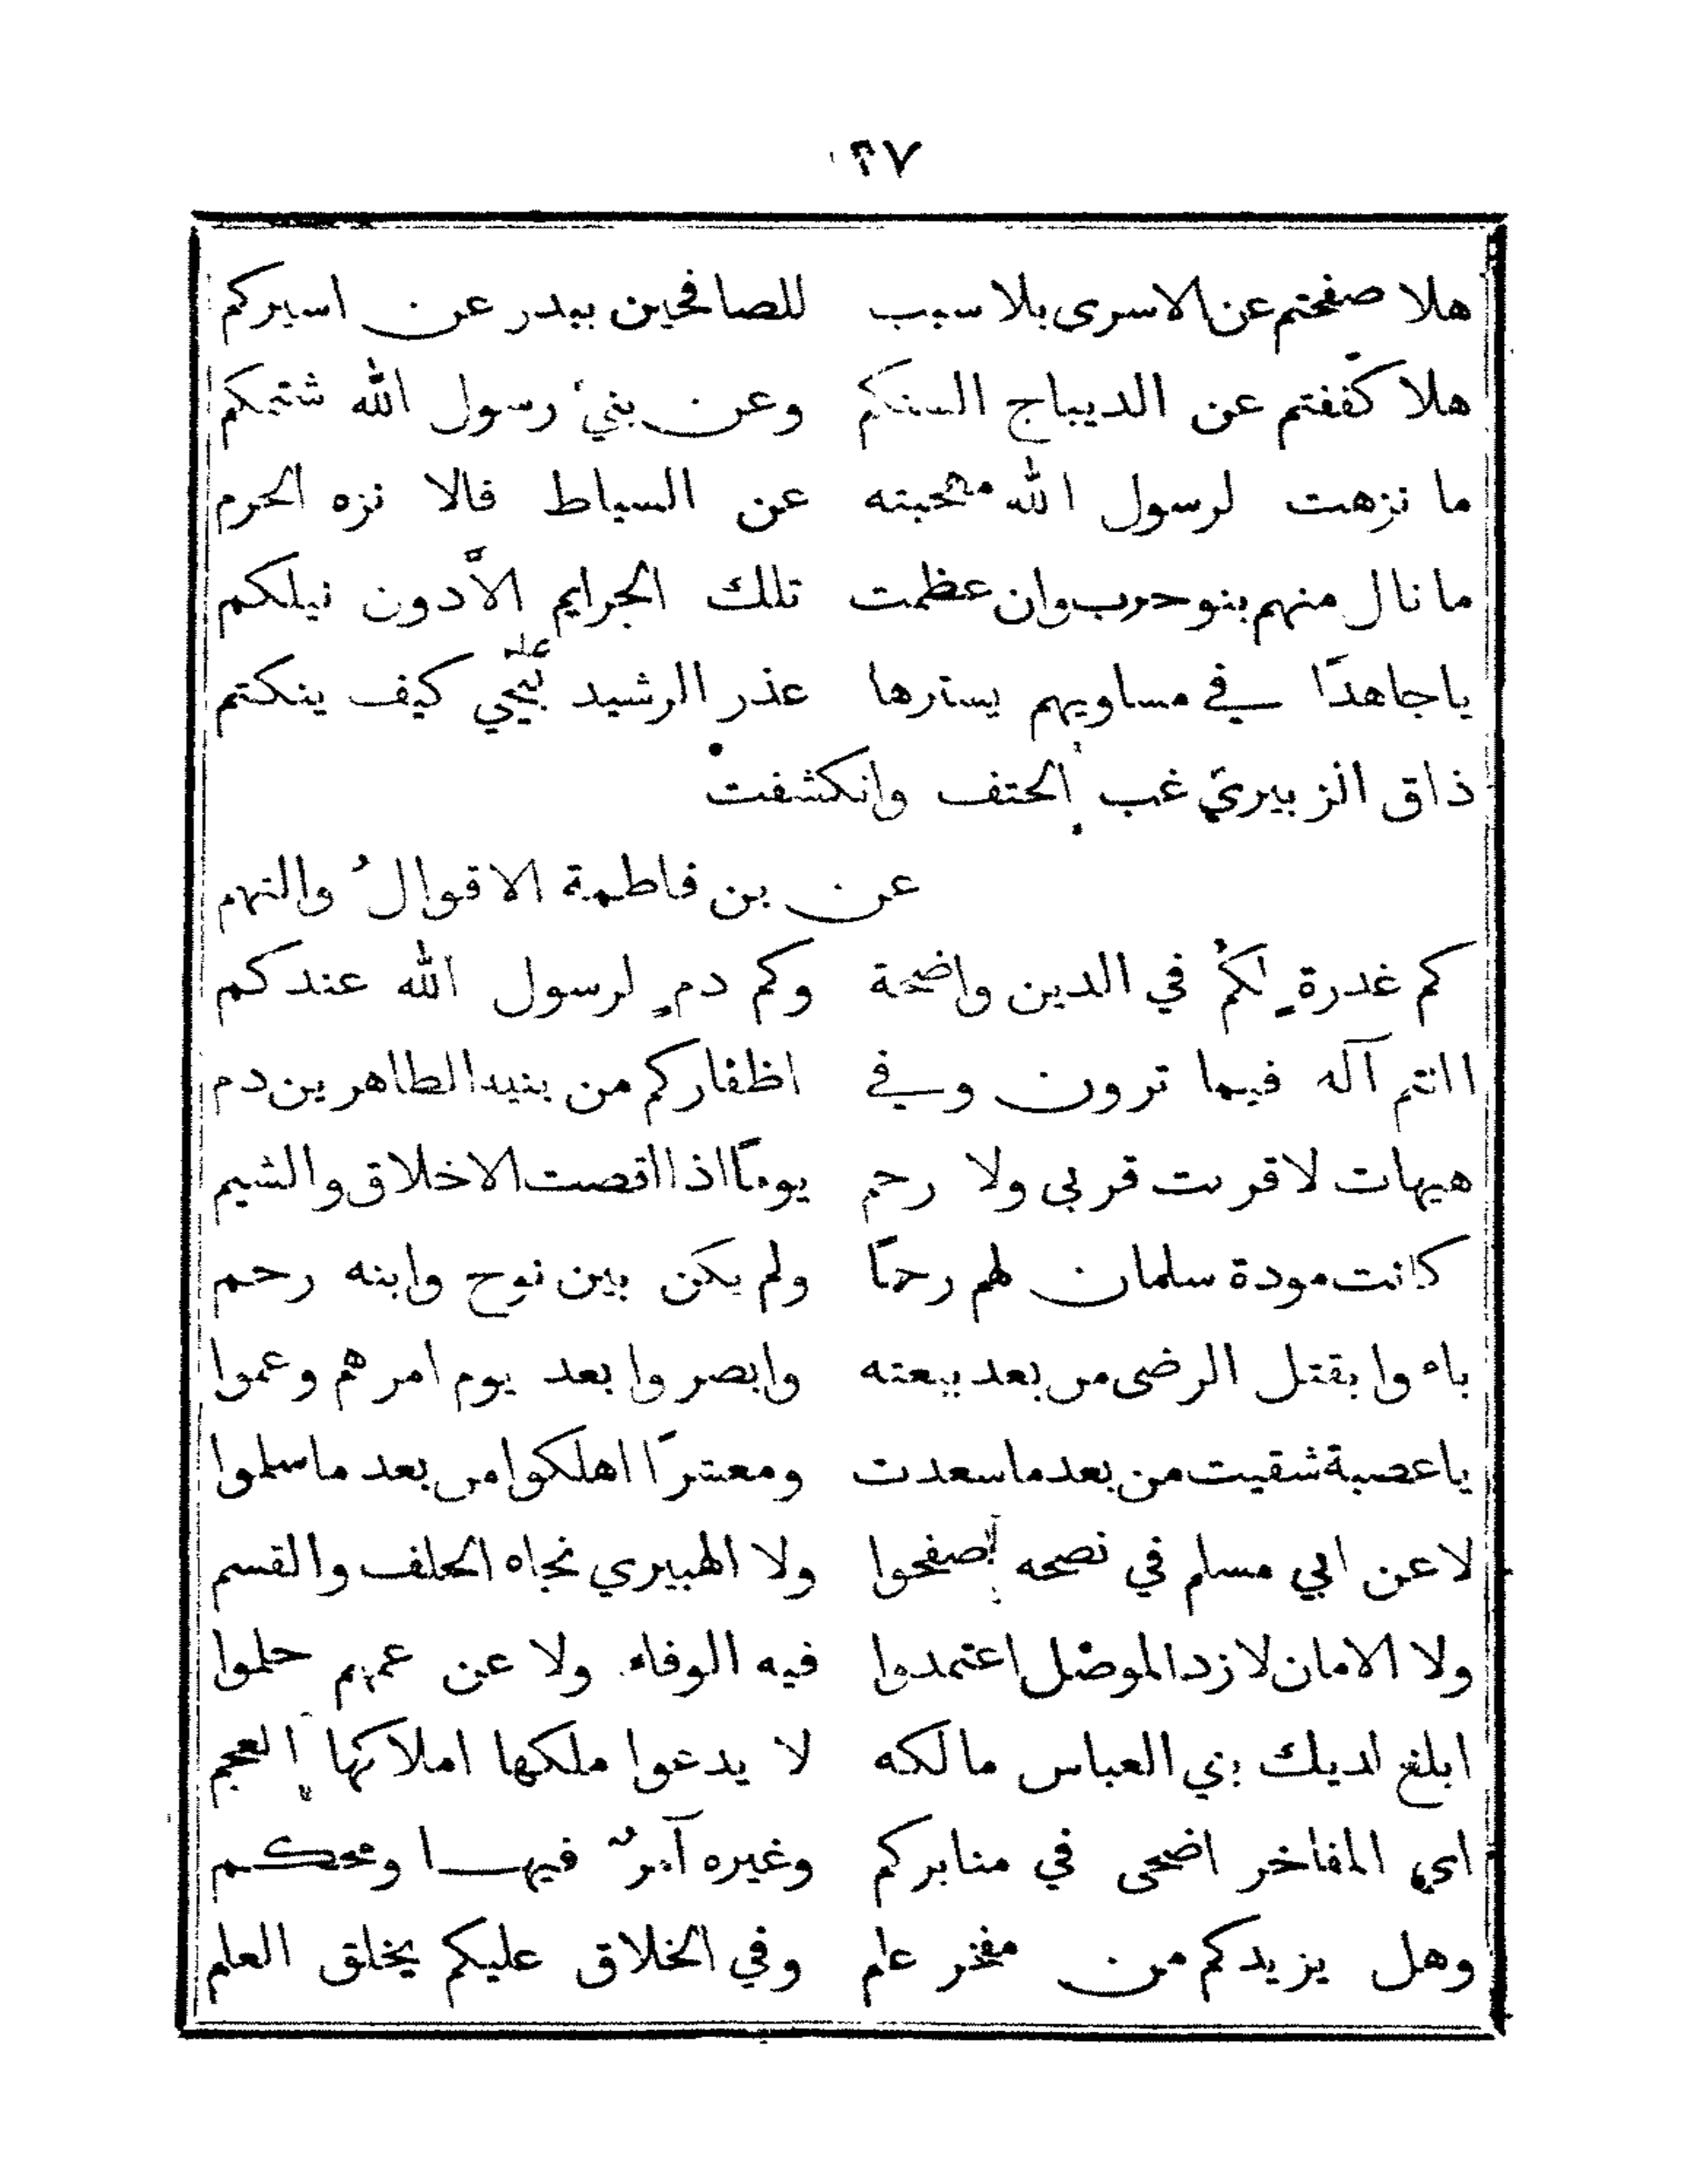 ٢٧
هلا صفحتم عن الاسرى بلا سبب للصافحين ببدر عن اسيركم
هلا كففتم عن الديباج السنكم وعن بني رسول الله شتمكم
ما نزهت لرسول الله مهجته عن السياط فالا نزه الحرم
ما نال منهم بنو حرب وان عظمت تلك الجرايم الّا دون نيلكم
ياجاهدًا في مساويهم يسترها عذر الرشيد بيحيي كيف ينكتم
ذاق الزبيري غب الحتف وانكشفت
عن بن فاطمة الاقوالُ والتهم
كم غدرةٍ لكمُ في الدين واضحة وكم دمٍ لرسول الله عندكم
اانتم آله فيما ترون وفي اظفاركم من بنيه الطاهرين دم
هيهات لا قربت قربى ولا رحم يومًا اذا اقصت الاخلاق والشيم
كانت مودة سلمان لهم رحمًا ولم يكن بين نوح وابنه رحم
باءوا بقتل الرضى من بعد بيعته وابصروا بعد يوم امرهم وعموا
ياعصبة شقيت من بعد ما سعدت ومعشرًا اهلكوا من بعد ما سلموا
لا عن ابي مسلم في نصحه صفحوا ولا الهبيري نجاه الحلف والقسم
ولا الامان لازد الموصل اعتمدوا فيه الوفاء ولا عن عمهم حلموا
ابلغ لديك بني العباس مالكه لا يدعوا ملكها املاكها العجم
اي المفاخر اضحى في منابركم وغيره آمرٌ فيها ومحكم
وهل يزيدكم من مفخر علم وفي الخلاق عليكم يخلق العلم